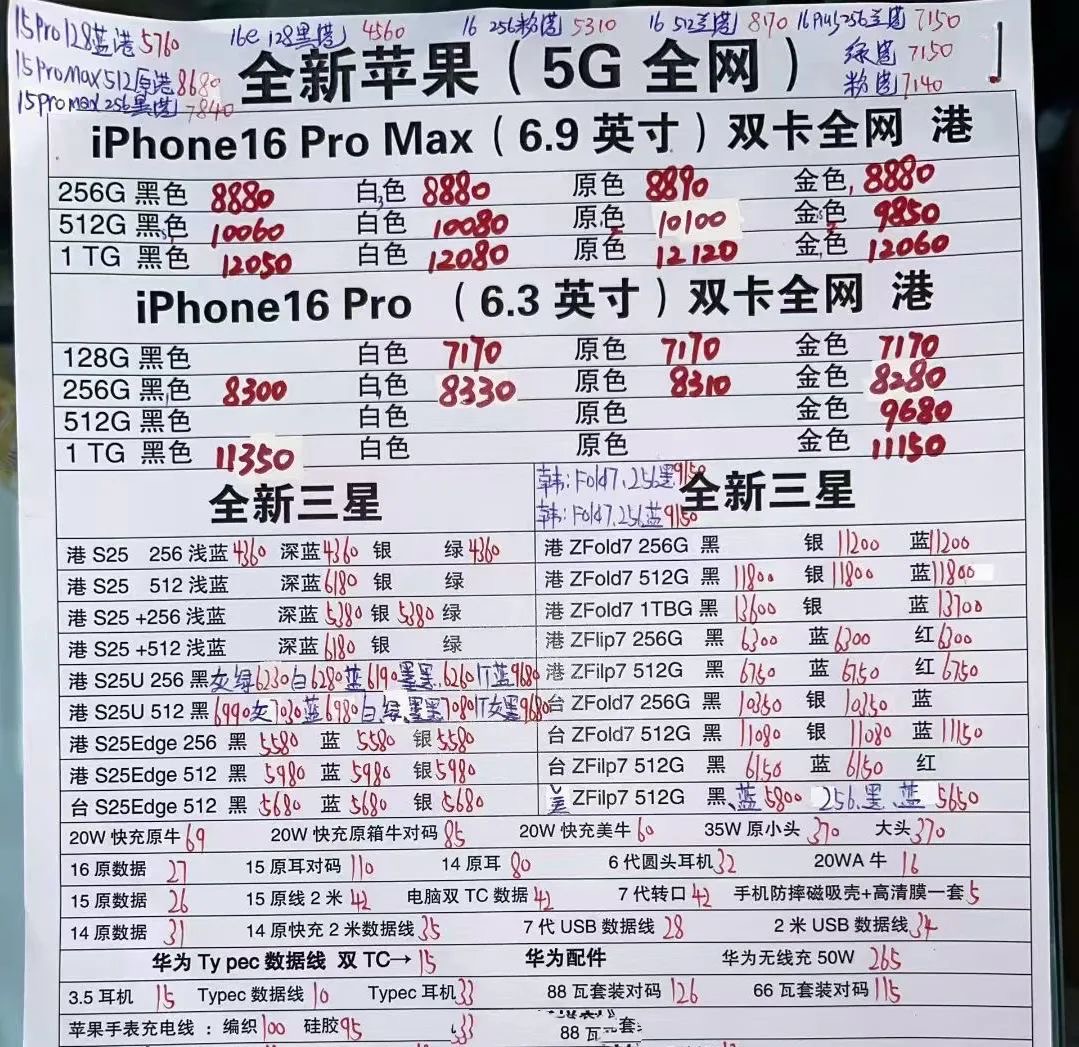 15Pro128蓝港5760 16e 128黑港 4560 16 256粉港5310 16 512兰港 16Plus256兰港 7150
15ProMax512原港8680 全新苹果（5G 全网） 绿港 7150
15Promax256黑港7840 粉港7140
iPhone16 Pro Max（6.9 英寸）双卡全网 港
256G 黑色 8880 白色 8880 原色 8890 金色 8880
512G 黑色 10060 白色 10080 原色 10100 金色 9850
1 TG 黑色 12050 白色 12080 原色 12120 金色 12060
iPhone16 Pro （6.3 英寸）双卡全网 港
128G 黑色 白色 7170 原色 7170 金色 7170
256G 黑色 8300 白色 8330 原色 8310 金色 8280
512G 黑色 白色 原色 金色 9680
1 TG 黑色 11350 白色 原色 金色 11150
全新三星
港 S25 256 浅蓝4360 深蓝4360 银 绿4360
港 S25 512 浅蓝 深蓝6180 银 绿
港 S25 +256 浅蓝 深蓝 5380 银 5380 绿
港 S25 +512 浅蓝 深蓝 6180 银 绿
港 S25U 256 黑 绿6230白6280蓝6190墨黑.6260 1T蓝9680
港 S25U 512 黑6990 7030蓝6980白.绿.墨黑7080 1T 黑9680
港 S25Edge 256 黑 5580 蓝 5580 银5580
港 S25Edge 512 黑 5980 蓝 5980 银5980
台 S25Edge 512 黑 5680 蓝 5680 银 5680
韩:Fold7.256黑9150
韩:Fold7.256蓝9150
全新三星
港 ZFold7 256G 黑 银 11200 蓝11200
港 ZFold7 512G 黑 11800 银 11800 蓝11800
港 ZFold7 1TBG 黑 13600 银 蓝 13700
港 ZFlip7 256G 黑 6300 蓝 6300 红6300
港 ZFilp7 512G 黑 6750 蓝 6750 红 6750
台 ZFold7 256G 黑 10350 银 10350 蓝
台 ZFold7 512G 黑 11080 银 11080 蓝 11150
台 ZFilp7 512G 黑 6150 蓝 6150 红
美 ZFilp7 512G 黑、蓝5800 256.黑.蓝 5650
20W 快充原牛69 20W 快充原箱牛对码85 20W 快充美牛60 35W 原小头 370 大头370
16 原数据 27 15 原耳对码 110 14 原耳 80 6 代圆头耳机32 20WA 牛 16
15 原数据 26 15 原线 2 米 42 电脑双 TC 数据42 7 代转口 42 手机防摔磁吸壳+高清膜一套5
14 原数据 31 14 原快充 2 米数据线35 7 代 USB 数据线 28 2 米 USB 数据线 34
华为 Ty pec 数据线 双 TC→ 15 华为配件 华为无线充 50W 265
3.5 耳机 15 Typec 数据线 10 Typec 耳机33 88 瓦套装对码 126 66 瓦套装对码 115
苹果手表充电线 : 编织100 硅胶95 33 88 瓦 套